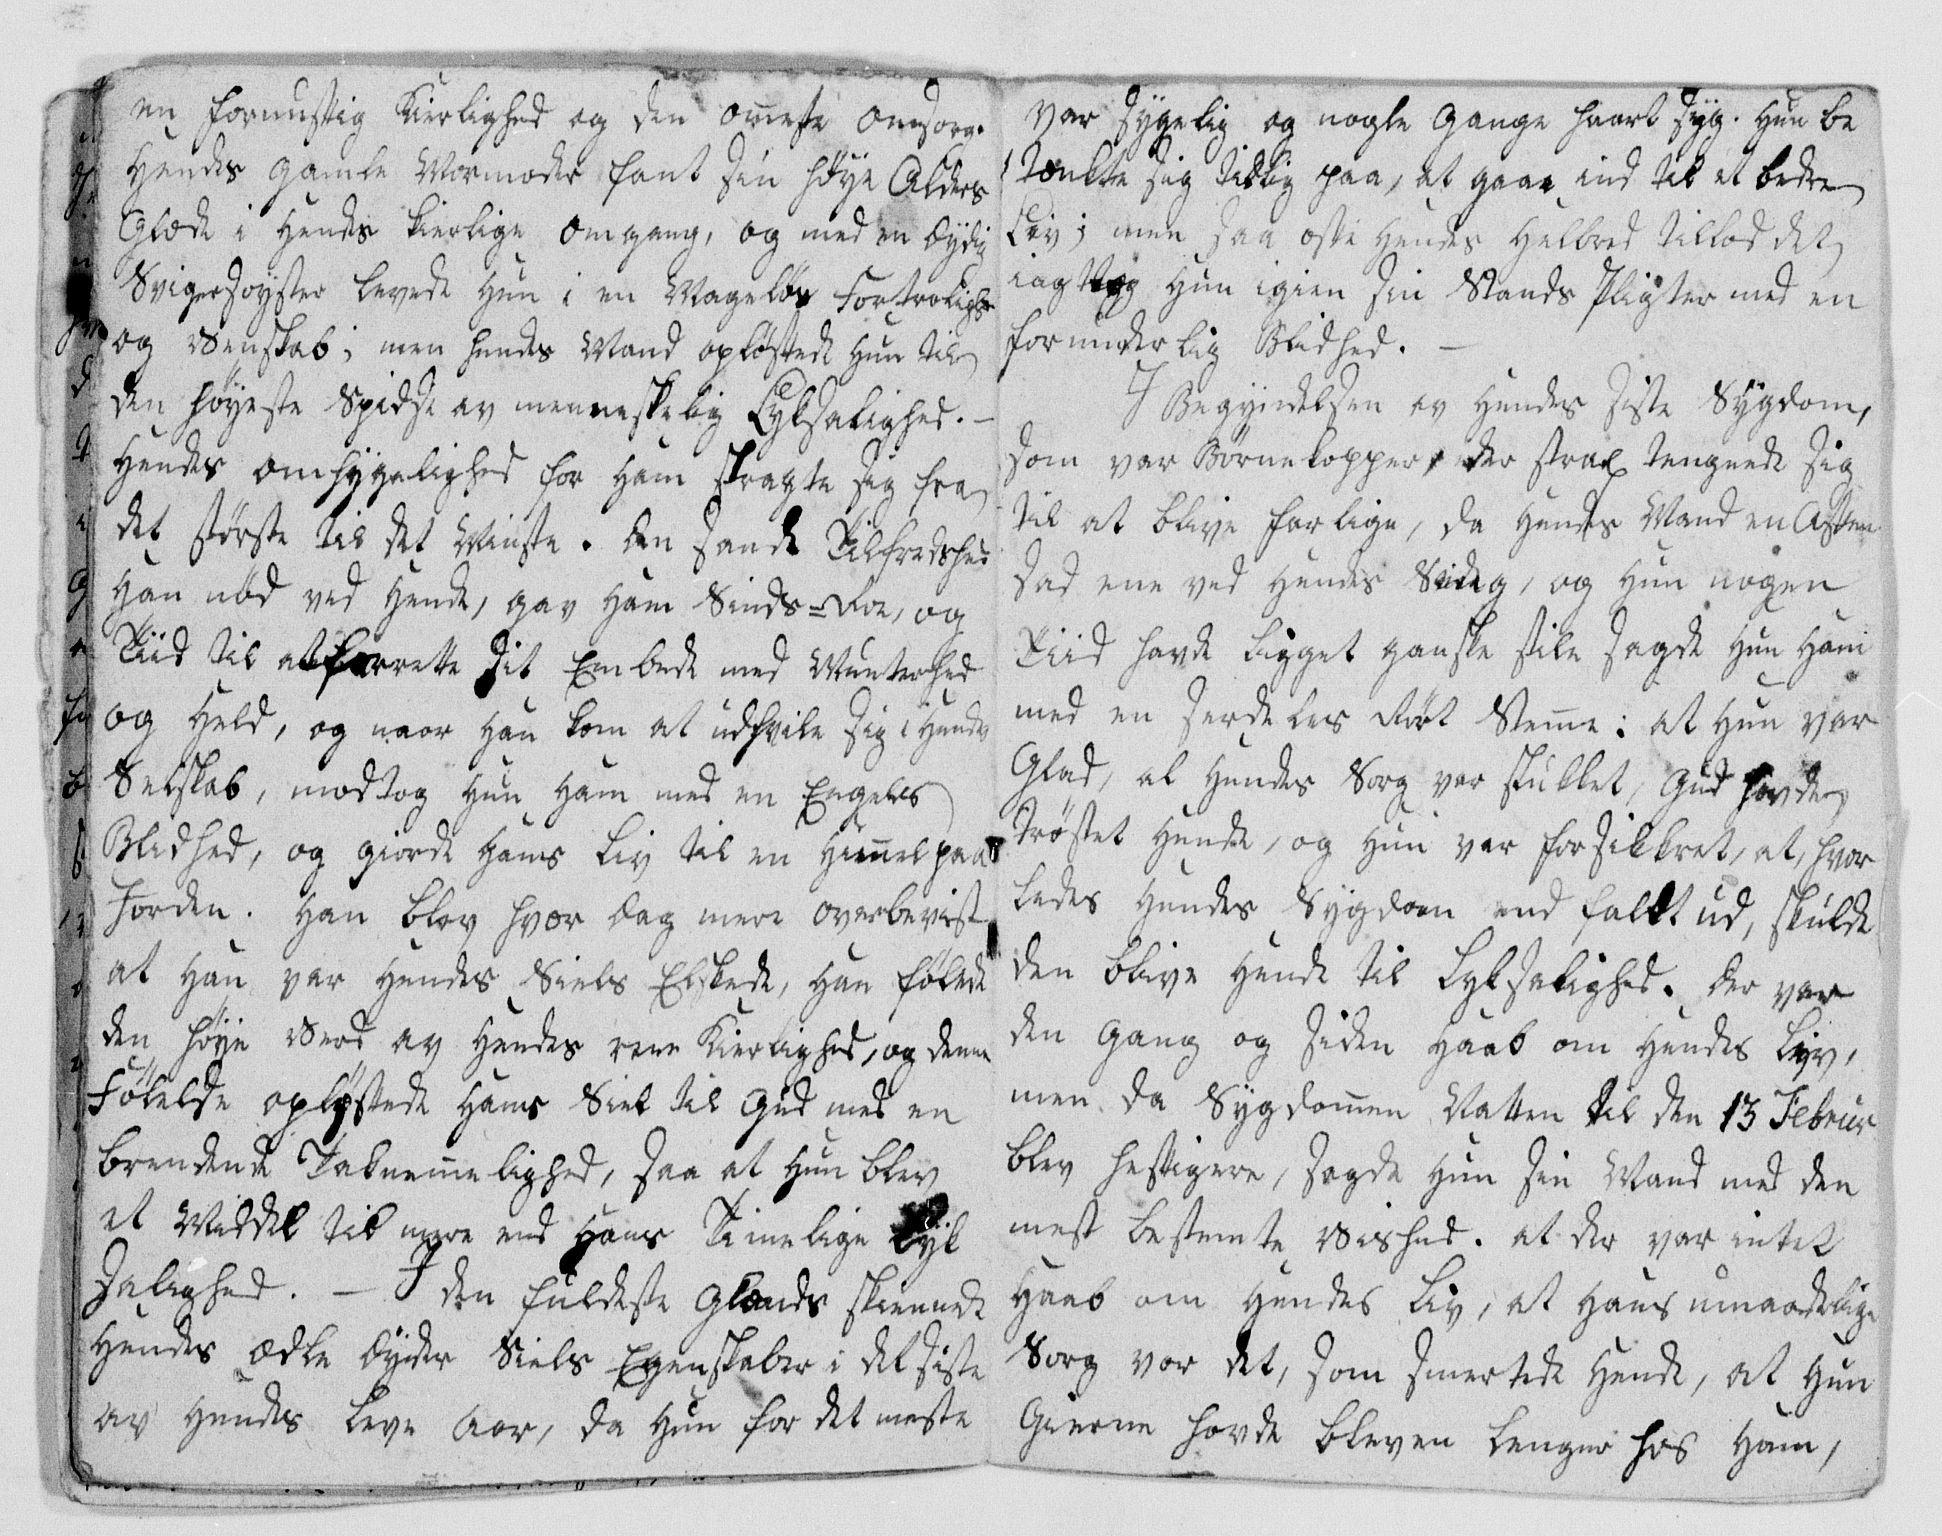 en fornuftig Kierlighed og den ømeste Omsorg.
Hendes gamle Mormoder fant sin høye Alders
Glæde i Hendes kierlige Omgang, og med en dydig
Svigersøyster levede Hun i en Mageløs Fortroligh
og Venskab; men hendes Mand opløftede Hun til
den høyeste Spidse av menneskelig Lyksalighed. —
Hendes Omhyggelighed for Ham stragte sig fra
det største til det Minste. Den sande Tilfredshed
Han nød ved Hende, gav Ham Sinds-Roe, og
Tiid til at forrette Sit Embede med Munterhed
og Held, og naar Han kom at udhvile sig i Hendes
Selskab, modtog Hun Ham med en Engels
Blidhed, og giorde Hans Liv til en Himel paa
Jorden. Han blev hver Dag mere overbevist
at Han var Hendes Siels Elskede, Han følede
den høye Verd av Hendes rene Kierlighed, og denne
Følelse opløftede Hans Siel til Gud med en
brendende Taknemelighed, saa at Hun blev
et Middel til mere end Hans Timelige Lyk
salighed. — I den fuldeste Glands skinnede
Hendes ædle Dyder Siels Egenskaber i det siste
av Hendes leve Aar, da Hun for det meste
var sygelig og nogle Gange haart syg. Hun be
tænkte sig tidlig paa, at gaae ind til et bedre
Liv; men saa ofte Hendes Helbred tillod det
iagttog Hun igien sin Stands Pligter med en
forunderlig Blidhed. —
I Begyndelsen av Hendes siste Sygdom,
som var Børnekopper, der strax tengnede sig
til at blive farlige, da Hendes Mand en Aften
sad ene ved Hendes Seng, og Hun nogen
Tiid havde ligget ganske stile sagde Hun Ham
med en serdeles rørt Steme: at Hun var
Glad, al Hendes Sorg var stillet, Gud havde
trøstet Hende, og Hun var forsikkret, at, hvor
ledes Hendes Sygdom end faldt ud, skulde
den blive Hende til Lyksalighed. Der var
den Gang og siden Haab om Hendes Liv,
men da Sygdomen Natten til den 13 Februar
blev heftigere, sagde Hun sin Mand med den
mest bestemte Vished. at der var intet
Haab om Hendes Liv, at Hans umaadelige
Sorg var det, som smertede Hende, at Hun
Gierne havde bleven lenger hos Ham,